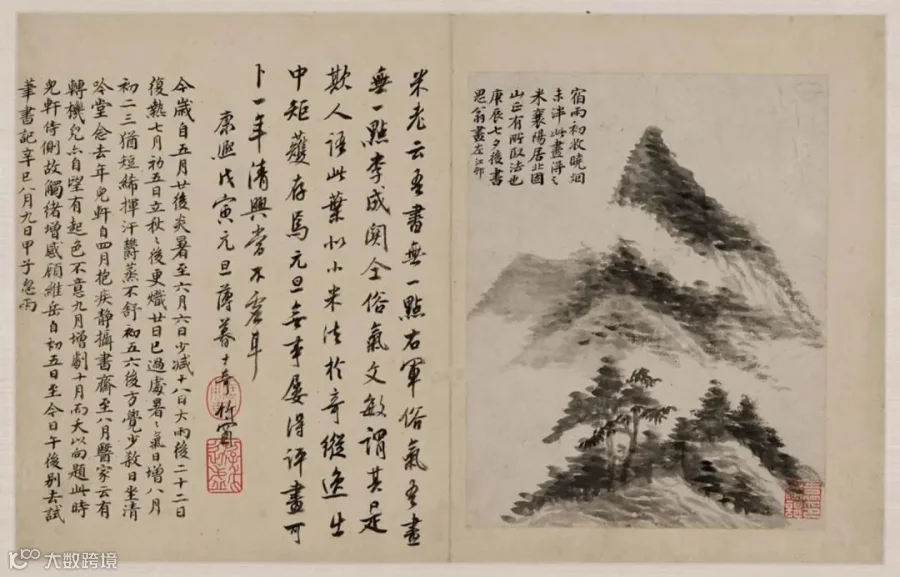 宿雨初收曉烟
未泮此畫得〻
米襄陽居北固
山正有所取法也
庚辰七夕後書
思翁畫左江邨
米老云吾書無一點右軍俗氣吾畫
無一點李成関仝俗氣文敏謂其是
欺人語此葉似小米法於奇縱逸出
中矩矱存焉元旦無事屢得評畫可
卜一年清興當不虛耳
康熙戊寅元旦薄暮士奇竹窗
今歲自五月廿後炎暑至六月六日少減十八日大雨後二十二日
復熱七月初五日立秋〻後更熾廿日已過處暑〻氣日增八月
初二三猶短絺揮汗鬱蒸不舒初五六後方覺少日坐清
吟堂念去年兒軒自四月抱疾靜攝書齋至八月醫家云有
轉機兒亦自望有起色不意九月增劇十月而夭以向題此時
兒軒侍側故觸緒增感顧維岳自初五日至今日午後別去試
筆書記辛巳八月九日甲子忽雨
大数跨境